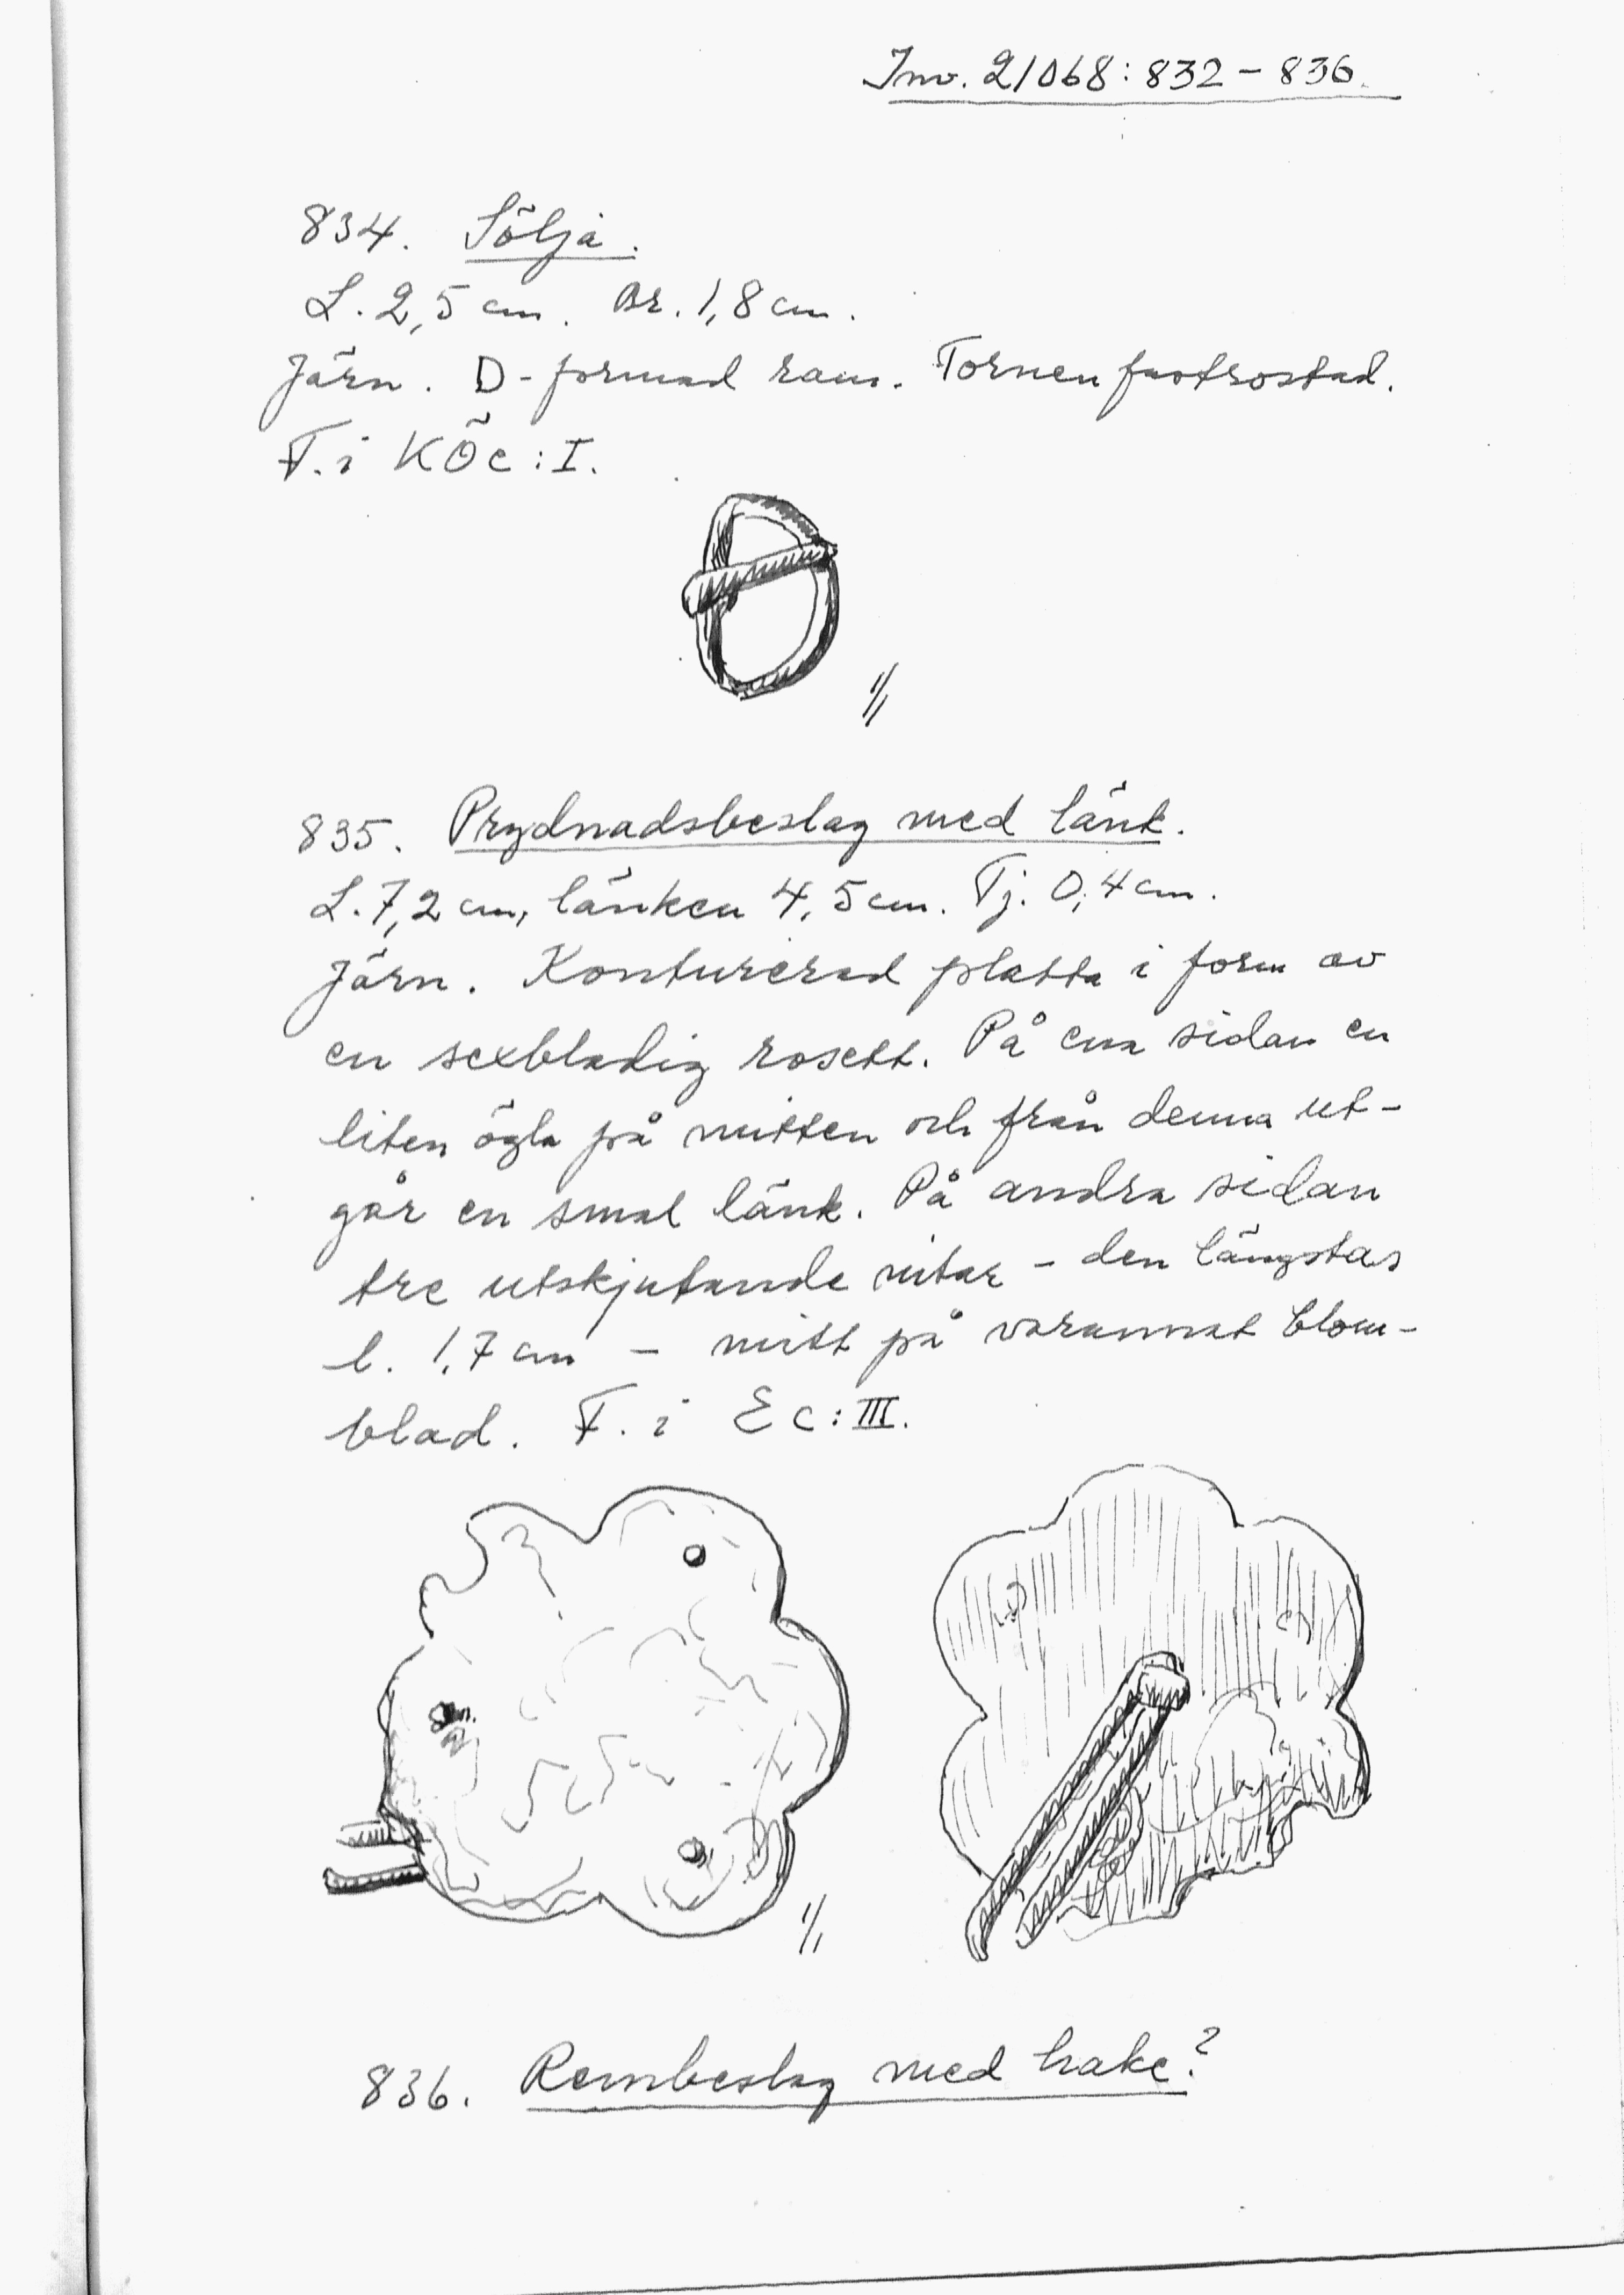 Inv. 21068:832-836.
834. Sölja.
L. 2,5 cm. Br. 1,8 cm.
Järn. D-formad ram. Tornen fastrostad.
F. i KÖc:I.
1/1
835. Prydnadsbeslag med länk.
L. 7,2 cm, länken 4,5 cm. Tj. 0,4 cm.
Järn. Konturerad platta i form av
en sexbladig rosett. På ena sidan en
liten ögla på mitten och från denna ut-
går en smal länk. På andra sidan
tre utskjutande nitar - den längstas
l. 1,7 cm - mitt på varannat blom-
blad. F. i Ec:III.
1/1
836. Rembeslag med hake?